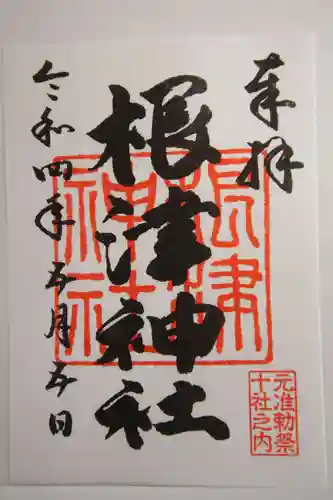 奉拝
根津神社
根津
神社
令和四年五月五日
元准勅祭
十社之内